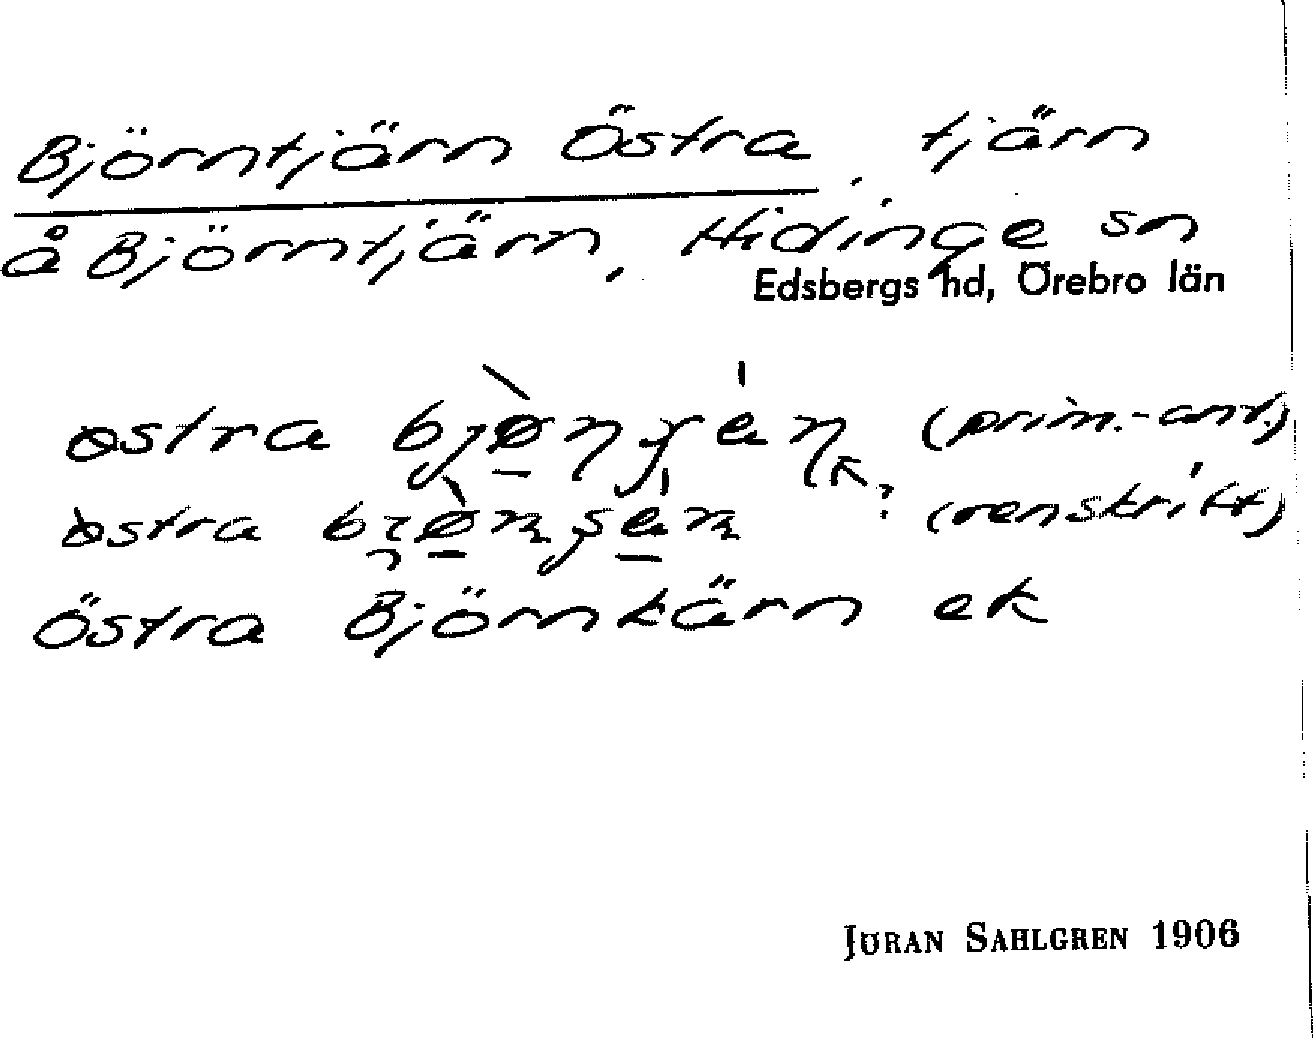 Björntjärn Östra, tjärn
å Björntjärn, Hidinge sn
Edsbergs hd, Örebro län
östra (prim.-ant.)
östra (renskrift)
Östra Björnkärn ek
JÖRAN SAHLGREN 1906